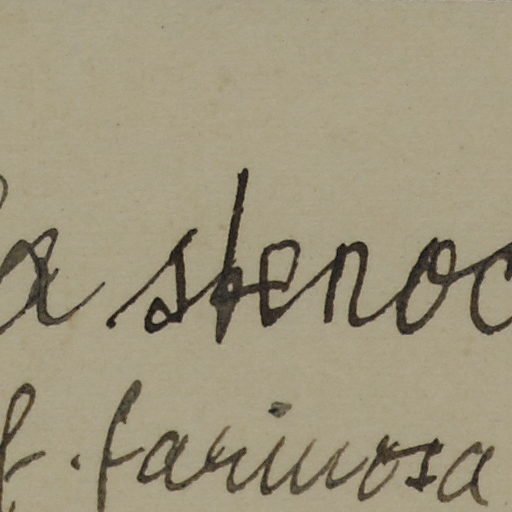 a stenoc
f. farinosa